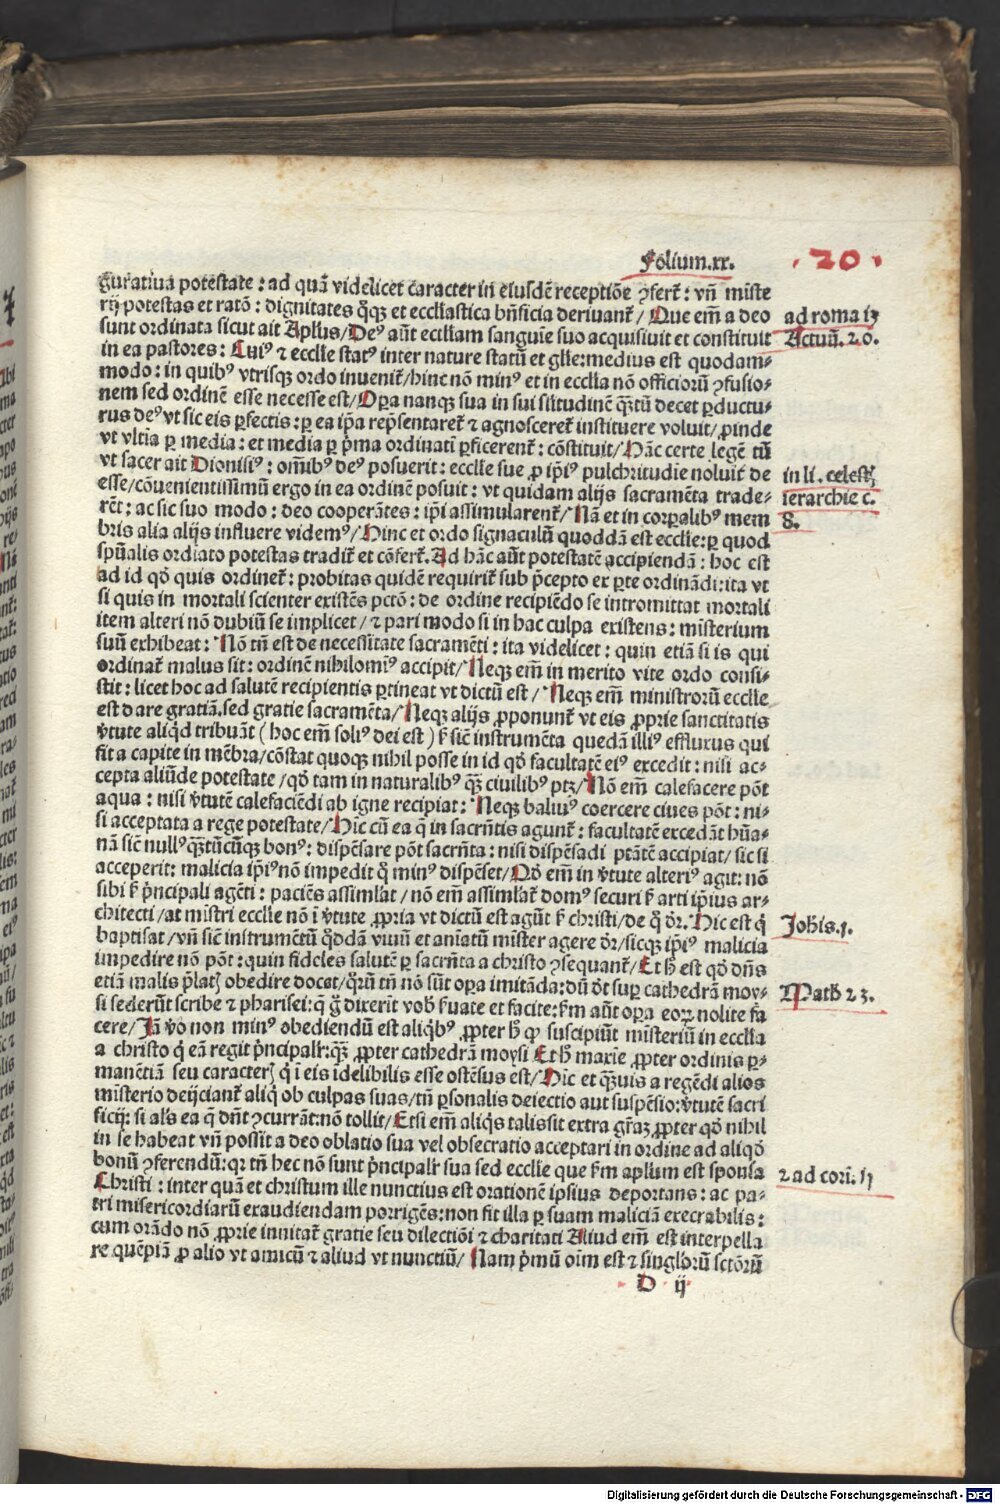 Folium.xx.
. 20 .
guratiua potestate : ad quã videlicet caracter in eiusdẽ receptiõe ꝯfert᷑ : vñ miste
rij potestas et ratõ : dignitates q̃ꝫ et eccl̃iastica bñficia deriuant᷑ / Que em̃ a deo
sunt ordinata sicut ait Apl̃us / Deꝰ aũt eccl̃iam sanguĩe suo acquisiuit et constituit
in ea pastores : Cuiꝰ ⁊ eccl̃ie statꝰ inter nature statũ et gl̃ie: medius est quodam⸗
modo : in quibꝰ vtrisqꝫ ordo inuenit᷑ / hinc nõ minꝰ et in eccl̃ia nõ officiorũ ꝯfusio⸗
nem sed ordinẽ esse necesse est / Oꝑa nanqꝫ sua in sui sil̃itudinẽ q̃ꝫtũ decet ꝑductu⸗
rus deꝰ vt sic eis ꝑfectis : ꝑ ea ip̃a rep̃sentaret᷑ ⁊ agnosceret᷑ instituere voluit / ꝓinde
vt vltĩa ꝑ media : et media ꝑ p̃ma ordinatĩ ꝑficerent᷑ : cõstituit / Hãc certe legẽ tũ
vt sacer ait Dionisiꝰ : om̃ibꝰ deꝰ posuerit : eccl̃ie sue ꝓ ip̃iꝰ pulchritudĩe noluit de
esse / cõuenientissimũ ergo in ea ordinẽ posuit : vt quidam alijs sacramẽta trade⸗
rẽt : ac sic suo modo : deo cooperãtes : ip̃i assimularent᷑ / Nã et in corꝑalibꝰ mem
bris alia alijs influere videmꝰ / Hinc et ordo signaculũ quoddã est eccl̃ie: ꝑ quod
spũalis ordiato potestas tradit᷑ et cõfert᷑. Ad hãc aũt potestatẽ accipiendã : hoc est
ad id qđ quis ordinet᷑ : probitas quidẽ requirit᷑ sub p̃cepto ex ꝑte ordinãdi: ita vt
si quis in mortali scienter existẽs pctõ : de ordine recipiẽdo se intromittat mortali
item alteri nõ dubiũ se implicet / ⁊ pari modo si in hac culpa existens : misterium
suũ exhibeat : Nõ tñ est de necessitate sacramẽti : ita videlicet : quin etiã si is qui
ordinat᷑ malus sit : ordinẽ nihilominꝰ accipit / Neqꝫ em̃ in merito vite ordo consi⸗
stit : licet hoc ad salutẽ recipientis ꝑtineat vt dictũ est / Neqꝫ em̃ ministrorũ eccl̃ie
est dare gratiã. sed gratie sacramẽta / Neqꝫ alijs ꝓponunt᷑ vt eis ꝓprie sanctitatis
v̾tute aliqđ tribuãt ( hoc em̃ soliꝰ dei est ) ꝶ sic̃ instrumẽta quedã illiꝰ effluxus qui
fit a capite in mẽbra / cõstat quoqꝫ nihil posse in id qđ facultatẽ eiꝰ excedit : nisi ac⸗
cepta aliũde potestate / qđ tam in naturalibꝰ q̃ꝫ ciuilibꝰ ptꝫ / Nõ em̃ calefacere põt
aqua : nisi v̾tutẽ calefaciẽdi ab igne recipiat : Neqꝫ baliuꝰ coercere ciues põt : ni⸗
si acceptata a rege potestate / Hic cũ ea q̃ in sacrñtis agunt᷑ : facultatẽ excedãt hũa⸗
nã sic̃ nullꝰ q̃ꝫtũcũqꝫ bonꝰ : dispẽsare põt sacrñta : nisi dispẽsãdi ptãtẽ accipiat / sic si
acceperit : malicia ip̃iꝰ nõ impedit q̊ minꝰ dispẽset / Qđ em̃ in v̾tute alteriꝰ agit: nõ
sibi ꝶ p̃ncipali agẽti : paciẽs assimlat᷑ / nõ em̃ assimlat᷑ domꝰ securi ꝶ arti ip̃ius ar⸗
chitecti / at mĩstri eccl̃ie nõ ĩ v̾tute ꝓpria vt dictũ est agũt ꝶ christi / de q̊ dr̃. Hic est q̇
baptisat / vñ sic̃ instrumẽtũ qđdã viuũ et aniatũ mĩster agere dr̃ / sicqꝫ ip̃iꝰ malicia
impedire nõ põt : quin fideles salutẽ ꝑ sacrñta a christo ꝯsequant᷑ / Et h̃ est qđ dñs
etiã malis p̃latꝭ obedire docet / qꝛũ tñ nõ sũt oꝑa imitãda: dũ dt̃ suꝑ cathedrã moy⸗
si sederũt scribe ⁊ pharisei: q̃ g̊ dixerit vob᷑ ẜuate et facite: ẜm aũt oꝑa eoꝝ nolite fa
cere / Iã v̾o non minꝰ obediendũ est aliqbꝰ ꝓpter h̃ ꝙ suscipiũt misteriũ in eccl̃ia
a christo q̇ eã regit p̃ncipalr̃: q̃ꝫ ꝓpter cathedrã moysi Et h̃ maxie ꝓpter ordinis ꝑ⸗
manẽtiã seu caracterꝭ q̇ ĩ eis ĩdelibilis esse ostẽsus est / Hic et q̃ꝫuis a regẽdi alios
misterio deijciant᷑ aliq̇ ob culpas suas / tñ ꝑsonalis deiectio aut suspẽsio: v̾tutẽ sacri
ficij : si al's ea q̃ dñt ꝯcurrãt: nõ tollit / Etsi em̃ aliq̇s talis sit extra gr̃az ꝓpter qđ nihil
in se habeat vñ possit a deo oblatio sua vel obsecratio acceptari in ordine ad aliqđ
bonũ ꝯferendũ: qꝛ tñ hec nõ sunt p̃ncipalr̃ sua sed eccl̃ie que ẜm apl̃um est sponsa
Christi : inter quã et christum ille nunctius est orationẽ ipsius deportans : ac pa⸗
tri misericordiarũ exaudiendam porrigẽs: non fit illa ꝑ suam maliciã execrabilis :
cum orãdo nõ ꝓprie innitat᷑ gratie seu dilectiõi ⁊ charitati Aliud em̃ est interpella
re quẽpiã ꝓ alio vt amicũ ⁊ aliud vt nunctiũ / Nam p̃mũ oĩm est ⁊ singlorũ sctõrũ
D ij
ad roma 13
Actuũ. 20.
in li. celestꝭ
ierarchie c.
8.
Johis. 1.
Math 23.
2 ad cori. 11
Digitalisierung gefördert durch die Deutsche Forschungsgemeinschaft - DFG